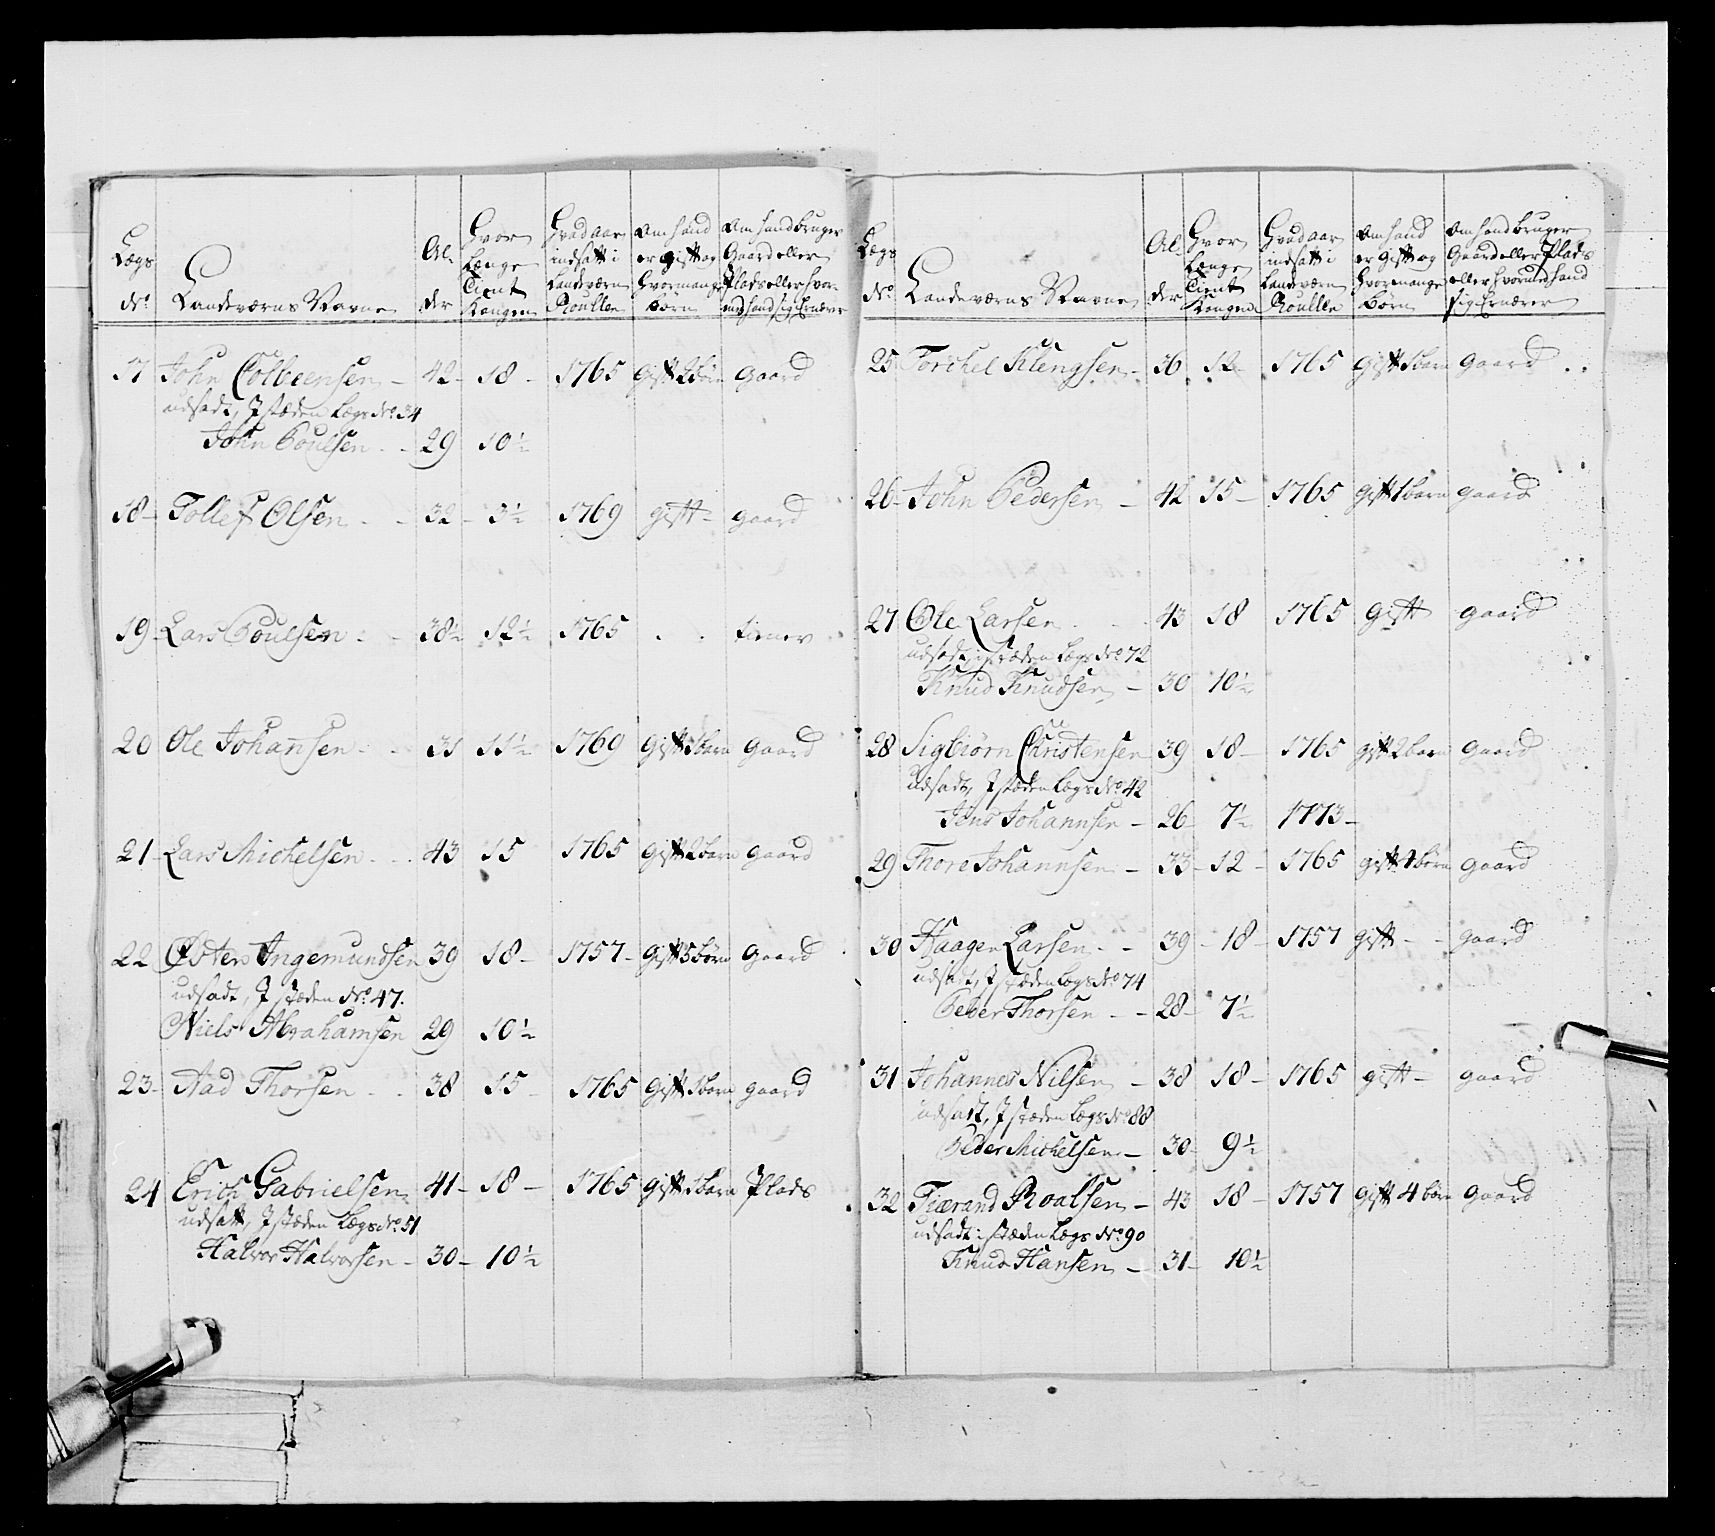 Lægs No. | Landeværns Navne | Alder | Hvor længe Tient Kongen | Hvad aar indsatt i Landeværn Roullen | Om hand er gift og hvor mange børn | Om hand bruger Gaard eller Plads eller hvor med hand sig Ernærer
17 John Colbeensen – 42 – 18 – 1765 gift 2 børn gaard
udsadt, I stæden Lægs No. 34
John Poulsen – 29 10½
18 – Tollef Olsen – 32 – 3½ 1769 gift – gaard
19 – Lars Poulsen – 38½ 12½ 1765 tiener
20 Ole Johansen – 31 11½ 1769 gift 1 barn gaard
21 – Lars Michelsen 43 15 1765 gift 2 barn gaard
22 Østen Ingemundsen 39 18 – 1757 – gift 5 børn gaard
udsadt, I stæden No. 47.
Niels Abrahamsen 29 10½
23 – Aad Thorsen 38 15 – 1765 gift 1 barn gaard
24 Erich Gabrielsen 41 – 18 – 1765 gift 1 barn Plads
udsatt, I stæden Lægs No. 51
Halvor Halvorsen – 30 – 10½
Lægs No. | Landeværns Navne | Alder | Hvor længe Tient Kongen | Hvad aar indsatt i Landeværn Roullen | Om hand er gift og hvor mange børn | Om hand bruger Gaard eller Plads eller hvormed hand sig Ernærer
25 Torchel Klengsen – 36 12 1765 gift 1 barn gaard
26 – John Pedersen – 42 15 – 1765 gift 1 barn gaard
27 Ole Larsen 43 18 1765 gift gaard
udsadt, i stæden Lægs No. 72
Knud Knudsen – 30 10½
28 Sigbiørn Christensen 39 18 – 1765 gift 2 barn gaard
udsadt, I stæden Lægs No. 42
Jens Johannsen – 26 7½ 1773 –
29 Thore Johannsen – 33 – 12 – 1765 gift børn gaard
30 Haagen Larsen – 39 – 18 – 1757 gift – gaard
udsadt, I stæden Lægs No. 74
Peder Thorsen – 28 – 7½
31 Johannes Nilsen – 38 18 – 1765 gift – gaard
udsadt, I stæden Lægs No. 88
Peder Michelsen – 30 9½
32 Tierand Roalsen – 43 18 – 1757 gift 4 børn gaard
udsadt i stæden Lægs No. 90
Knud Hansen – 31 – 10½